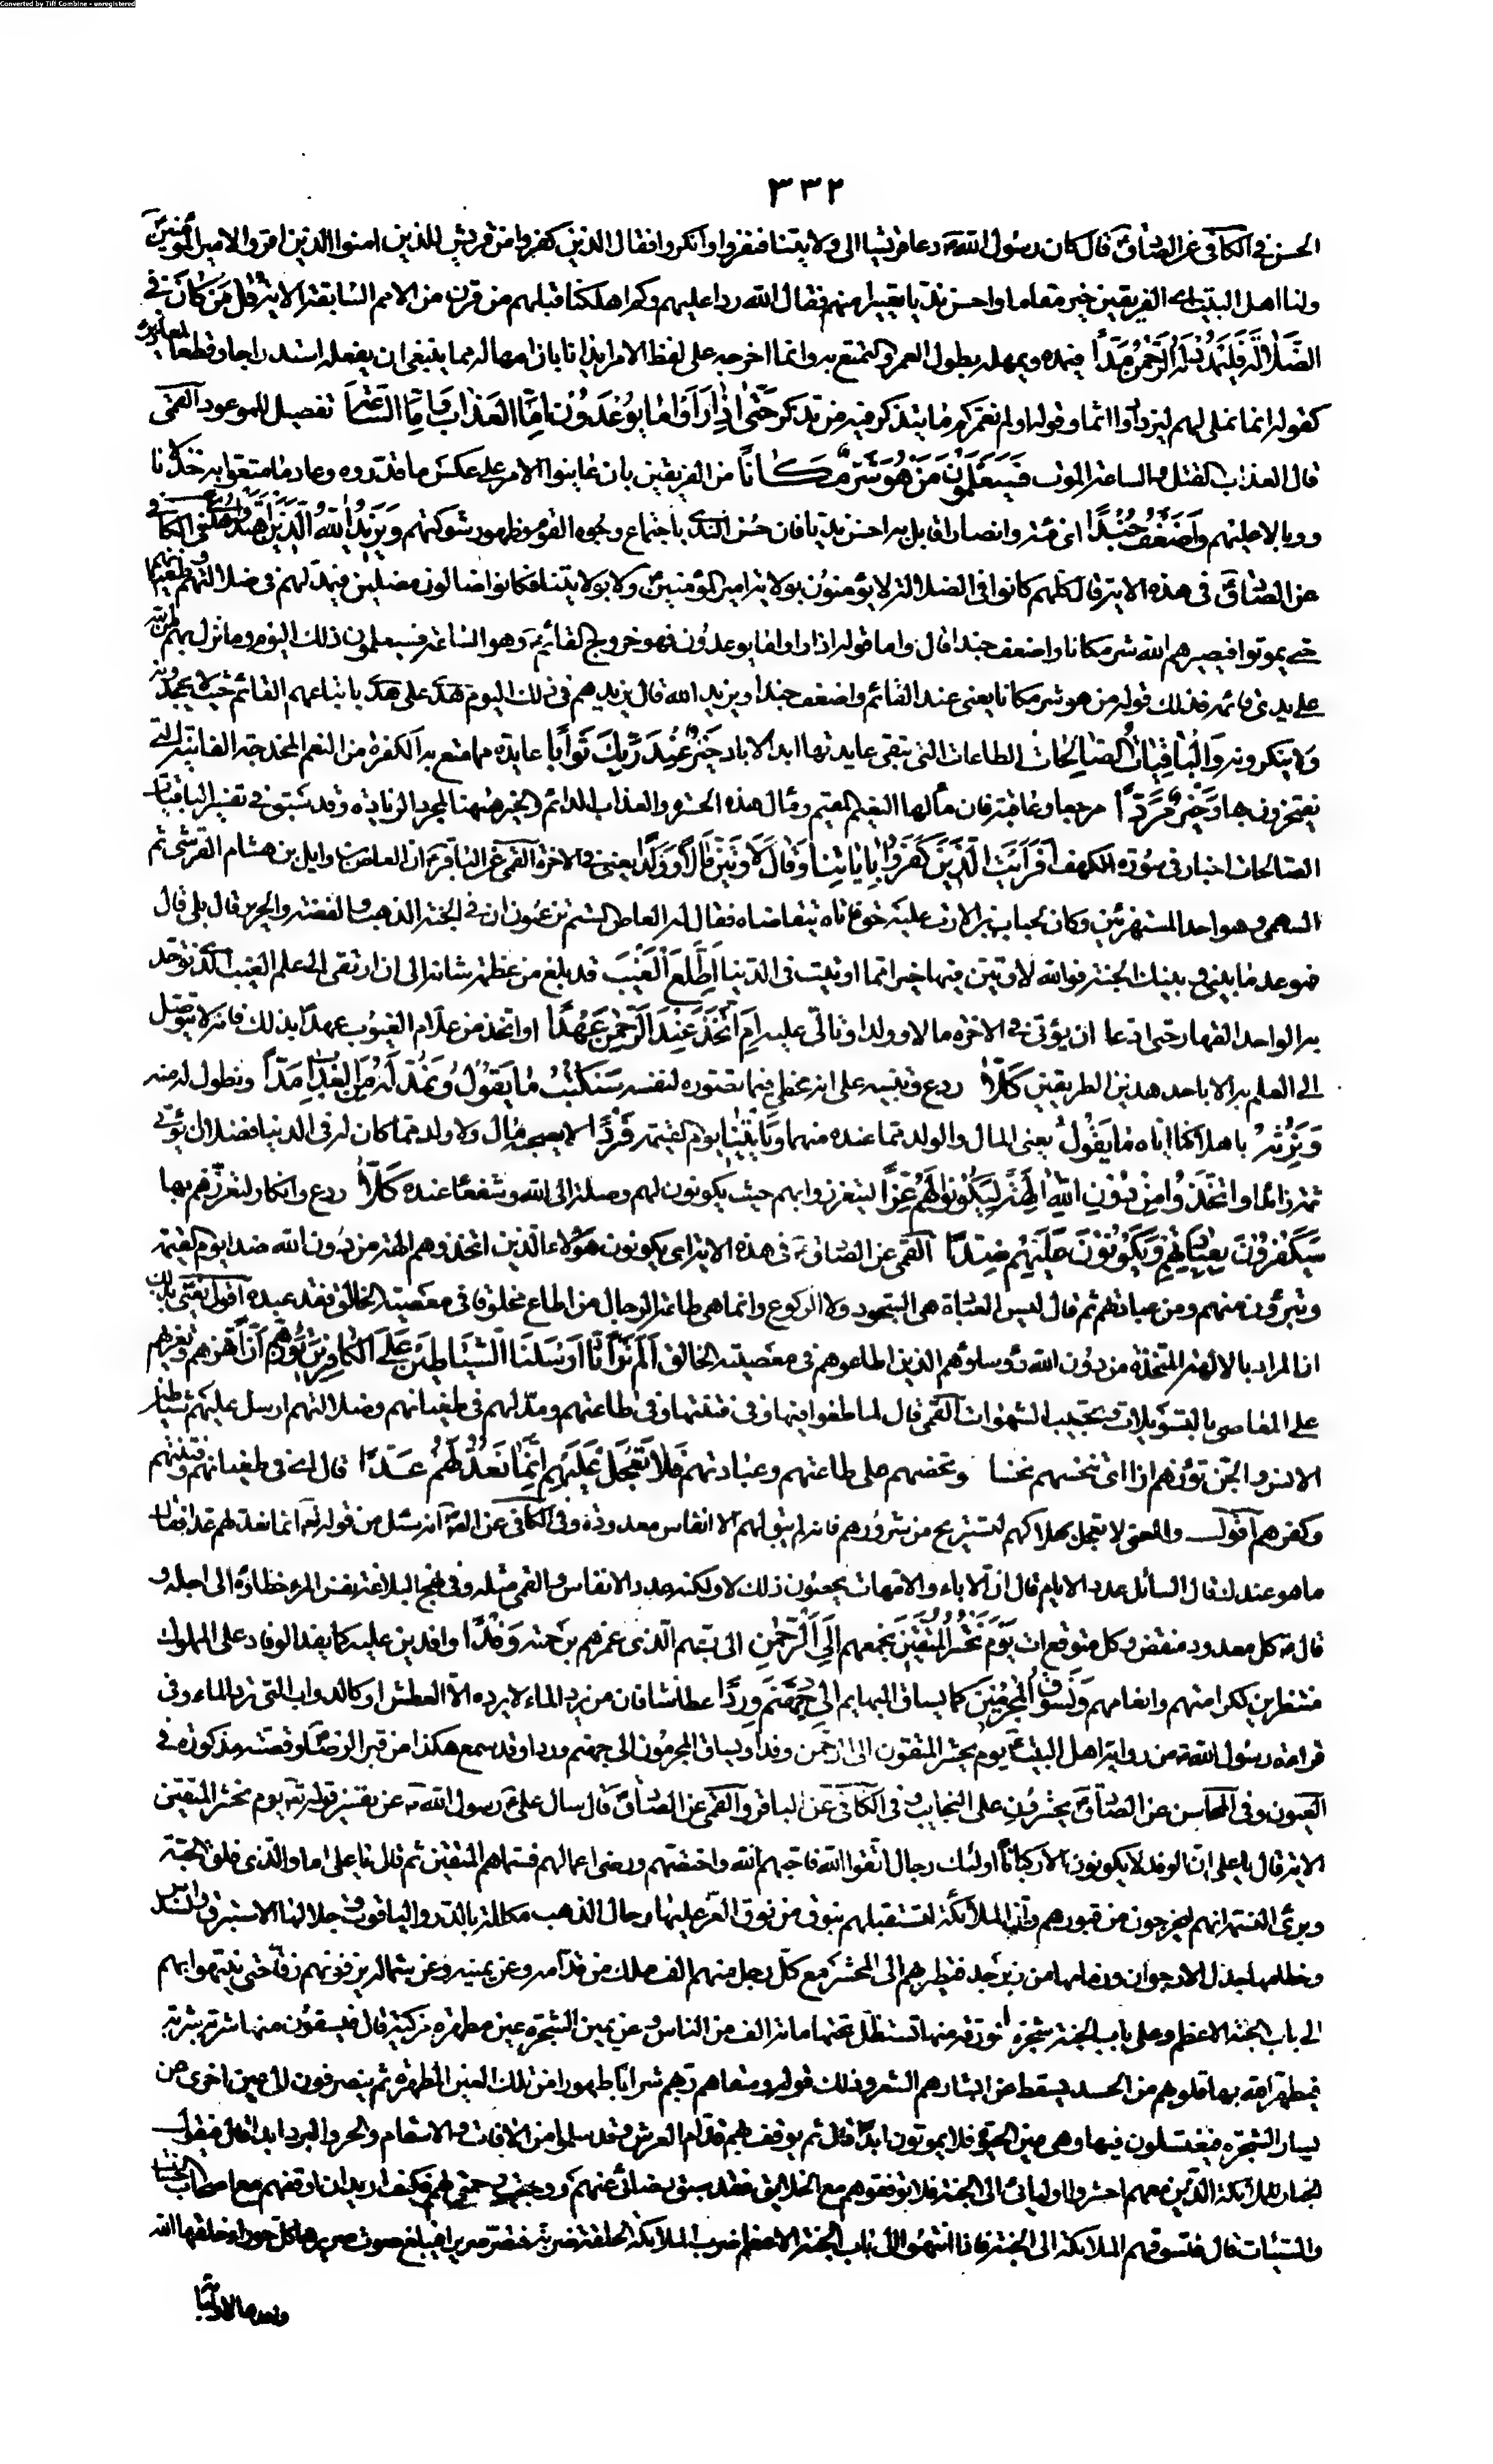 Converted by Tiff Combine - unregistered
٣٣٢
الحسن في الكافي عن الصادق قال كان رسول الله دعا قريشا الى ولايتنا فنفروا وانكروا فقال الذين كفروا من قريش للذين امنوا الذين اقروا لامير المؤمنين
ولنا اهل البيت اي الفريقين خير مقاما واحسن نديا تعييرا منهم فقال الله ردا عليهم وكم اهلكنا قبلهم من قرن من الامم السابقة الاية قُلْ مَنْ كَانَ فِي
الضَّلَالَةِ فَلْيَمْدُدْ لَهُ الرَّحْمٰنُ مَدًّا فيمده ويمهله بطول العمر والتمتع به وانما اخرجه على لفظ الامر ايذانا بان امهاله مما ينبغي ان يفعله استدراجا وقطعا لمعاذيره
كقوله انما نملي لهم ليزدادوا اثما وقوله اولم نعمركم ما يتذكر فيه من تذكر حَتّٰى اِذَا رَاَوْا مَا يُوعَدُونَ اِمَّا الْعَذَابَ وَاِمَّا السَّاعَةَ تفصيل للموعود القمي
قال العذاب القتل والساعة الموت فَسَيَعْلَمُونَ مَنْ هُوَ شَرٌّ مَكَانًا من الفريقين بان عاينوا الامر على عكس ما قدروه وعاد ما متعوا به خذلانا
ووبالا عليهم وَاَضْعَفُ جُنْدًا اي فئة وانصارا قابل به احسن نديا فان حسن الندى باجتماع وجوه القوم وظهور شوكتهم وَيَزِيدُ اللهُ الَّذِينَ اهْتَدَوْا هُدًى في الكافي
عن الصادق في هذه الاية قال كلهم كانوا في الضلالة لا يؤمنون بولاية امير المؤمنين ولا بولايتنا فكانوا ضالين مضلين فيمد لهم في ضلالتهم وطغيانهم
حتى يموتوا فيصيرهم الله شر مكانا واضعف جندا قال واما قوله اذا راوا ما يوعدون فهو خروج القائم وهو الساعة فسيعلمون ذلك اليوم وما نزل بهم من الله
على يدي قائمه فذلك قوله من هو شر مكانا يعني عند القائم واضعف جندا ويزيد الله قال يزيدهم في ذلك اليوم هدى على هدى باتباعهم القائم حيث لا يجحدونه
ولا ينكرونه وَالْبَاقِيَاتُ الصَّالِحَاتُ الطاعات التي تبقى عايدتها ابد الاباد خَيْرٌ عِنْدَ رَبِّكَ ثَوَابًا عايدة مما متع به الكفرة من النعم المخدجة الفانية التي
يفتخرون بها وَخَيْرٌ مَرَدًّا مرجعا وعاقبة فان مآلها النعيم المقيم ومآل هذه الحسرة والعذاب الدائم والخير ههنا لمجرد الزيادة وقد سبق في تفسير الباقيات
الصالحات اخبار في سورة الكهف اَفَرَاَيْتَ الَّذِي كَفَرَ بِاٰيَاتِنَا وَقَالَ لَاُوتَيَنَّ مَالًا وَوَلَدًا يعني في الاخرة القمي عن الباقر ان العاص بن وايل بن هشام القرشي ثم
السهمي وهو احد المستهزئين وكان لخباب بن الارت عليه حق فاتاه يتقاضاه فقال له العاص الستم تزعمون ان في الجنة الذهب والفضة والحرير قال بلى قال
فموعد ما بيني وبينك الجنة فوالله لاوتين فيها خيرا مما اوتيت في الدنيا اَطَّلَعَ الْغَيْبَ قد بلغ من عظمة شانه الى ان ارتقى الى علم الغيب الذي توحد
به الواحد القهار حتى ادعى ان يؤتى في الاخرة مالا وولدا وتالى عليه اَمِ اتَّخَذَ عِنْدَ الرَّحْمٰنِ عَهْدًا او اتخذ من علام الغيوب عهدا بذلك فانه لا يتوصل
الى العلم به الا باحد هذين الطريقين كَلَّا ردع وتنبيه على انه مخطئ فيما تصوره لنفسه سَنَكْتُبُ مَا يَقُولُ وَنَمُدُّ لَهُ مِنَ الْعَذَابِ مَدًّا ونطول له منه
وَنَرِثُهُ باهلاكنا اياه مَا يَقُولُ يعني المال والولد مما عنده منهما وَيَاْتِينَا يوم القيمة فَرْدًا لا يصحبه مال ولا ولد مما كان له في الدنيا فضلا ان يؤتى
ثمة زائدا وَاتَّخَذُوا مِنْ دُونِ اللهِ اٰلِهَةً لِيَكُونُوا لَهُمْ عِزًّا ليتعززوا بهم حيث يكونون لهم وصلة الى الله وشفعاء عنده كَلَّا ردع وانكار لتعززهم بها
سَيَكْفُرُونَ بِعِبَادَتِهِمْ وَيَكُونُونَ عَلَيْهِمْ ضِدًّا القمي عن الصادق في هذه الاية اي يكونون هؤلاء الذين اتخذوهم الهة من دون الله ضدا يوم القيمة
ويتبرؤن منهم ومن عبادتهم ثم قال ليس العبادة هي السجود ولا الركوع وانما هي طاعة الرجال من اطاع مخلوقا في معصية الخالق فقد عبده اقول يعني بذلك
ان المراد بالالهة المتخذة من دون الله رؤساؤهم الذين اطاعوهم في معصية الخالق اَلَمْ تَرَ اَنَّا اَرْسَلْنَا الشَّيَاطِينَ عَلَى الْكَافِرِينَ تَؤُزُّهُمْ اَزًّا تهزهم وتغريهم
على المعاصي بالتسويلات وتحبيب الشهوات القمي قال لما طغوا فيها وفي فتنتها وفي طاعتهم ومد لهم في طغيانهم وضلالتهم ارسل عليهم شياطين
الانس والجن تؤزهم ازا اي تنخسهم نخسا وتحضهم على طاعتهم وعبادتهم فَلَا تَعْجَلْ عَلَيْهِمْ اِنَّمَا نَعُدُّ لَهُمْ عَدًّا قال اي في طغيانهم وفتنتهم
وكفرهم اقول والمعنى لا تعجل بهلاكهم لتستريح من شرورهم فانه لم يبق لهم الا انفاس معدودة وفي الكافي عن الصادق انه سئل من قوله تعالى انما نعد لهم عدا فقال
ما هو عندك قال السائل عدد الايام قال ان الاباء والامهات يحصون ذلك لا ولكنه عدد الانفاس والقمي مثله وفي نهج البلاغة نفس المرء خطاؤه الى اجله و
قال كل معدود منقض وكل متوقع ات يَوْمَ نَحْشُرُ الْمُتَّقِينَ نجمعهم اِلَى الرَّحْمٰنِ الى ربهم الذي غمرهم برحمته وَفْدًا وافدين عليه كما يفد الوفاد على الملوك
منتظرين لكرامتهم وانعامهم وَنَسُوقُ الْمُجْرِمِينَ كما يساق البهايم اِلٰى جَهَنَّمَ وِرْدًا عطاشا فان من يرد الماء لا يرده الا لعطش او كالدواب التي ترد الماء وفي
قراءة رسول الله من رواية اهل البيت يوم يحشر المتقون الى الرحمن وفدا ويساق المجرمون الى جهنم وردا وقد سمع هكذا من قبر الرضا وقصته مذكورة في
العيون وفي المحاسن عن الصادق يحشرون على النجايب وفي الكافي عن الباقر والقمي عن الصادق قال سال علي رسول الله عن تفسير قوله تعالى يوم نحشر المتقين
الاية قال يا علي ان الوفد لا يكونون الا ركبانا اولئك رجال اتقوا الله فاحبهم الله واختصهم ورضي اعمالهم فسماهم المتقين ثم قال يا علي اما والذي فلق الحبة
وبرئ النسمة انهم ليخرجون من قبورهم وان الملائكة لتستقبلهم بنوق من نوق العز عليها رحال الذهب مكللة بالدر والياقوت وجلالها الاستبرق والسندس
وخطامها جدل الارجوان وزمامها من زبرجد فتطير بهم الى المحشر مع كل رجل منهم الف ملك من قدامه وعن يمينه وعن شماله يزفونهم زفا حتى ينتهوا بهم
الى باب الجنة الاعظم وعلى باب الجنة شجرة الورقة منها تستظل تحتها مائة الف من الناس وعن يمين الشجرة عين مطهرة مزكية قال فيسقون منها شربة شربة
فيطهر الله بها قلوبهم من الحسد ويسقط عن ابشارهم الشعر وذلك قوله وسقاهم ربهم شرابا طهورا من تلك العين المطهرة ثم ينصرفون الى عين اخرى عن
يسار الشجرة فيغتسلون فيها وهي عين الحيوة فلا يموتون ابدا قال ثم يوقف بهم قدام العرش وقد سلموا من الافات والاسقام والحر والبرد ابدا قال فيقول
الجبار للملائكة الذين معهم احشروا اوليائي الى الجنة فلا توقفوهم مع الخلايق فقد سبق رضائي عنهم ووجبت رحمتي لهم فكيف اريد ان اوقفهم مع اصحاب الحسنات
والسيئات قال فتسوقهم الملائكة الى الجنة فاذا انتهوا الى باب الجنة الاعظم ضرب الملائكة الحلقة ضربة فتصر صريرا فيبلغ صوت صريرها كل حوراء خلقها الله
واعدها لاوليائه